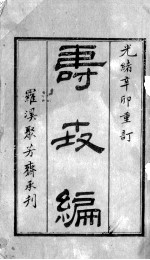 光緒辛卯重訂
壽世編
羅溪聚芳齋承刊